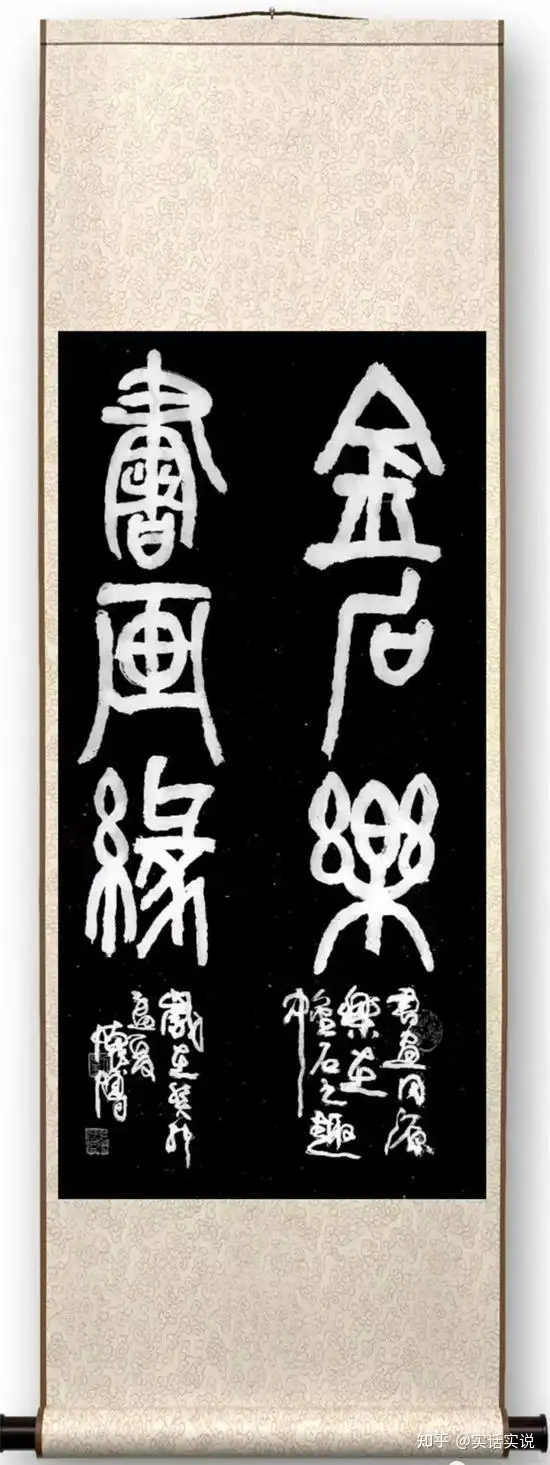 金石樂
書画緣
書画同源
樂在
金石之趣
中
歲在癸卯
孟夏
知乎 @实话实说